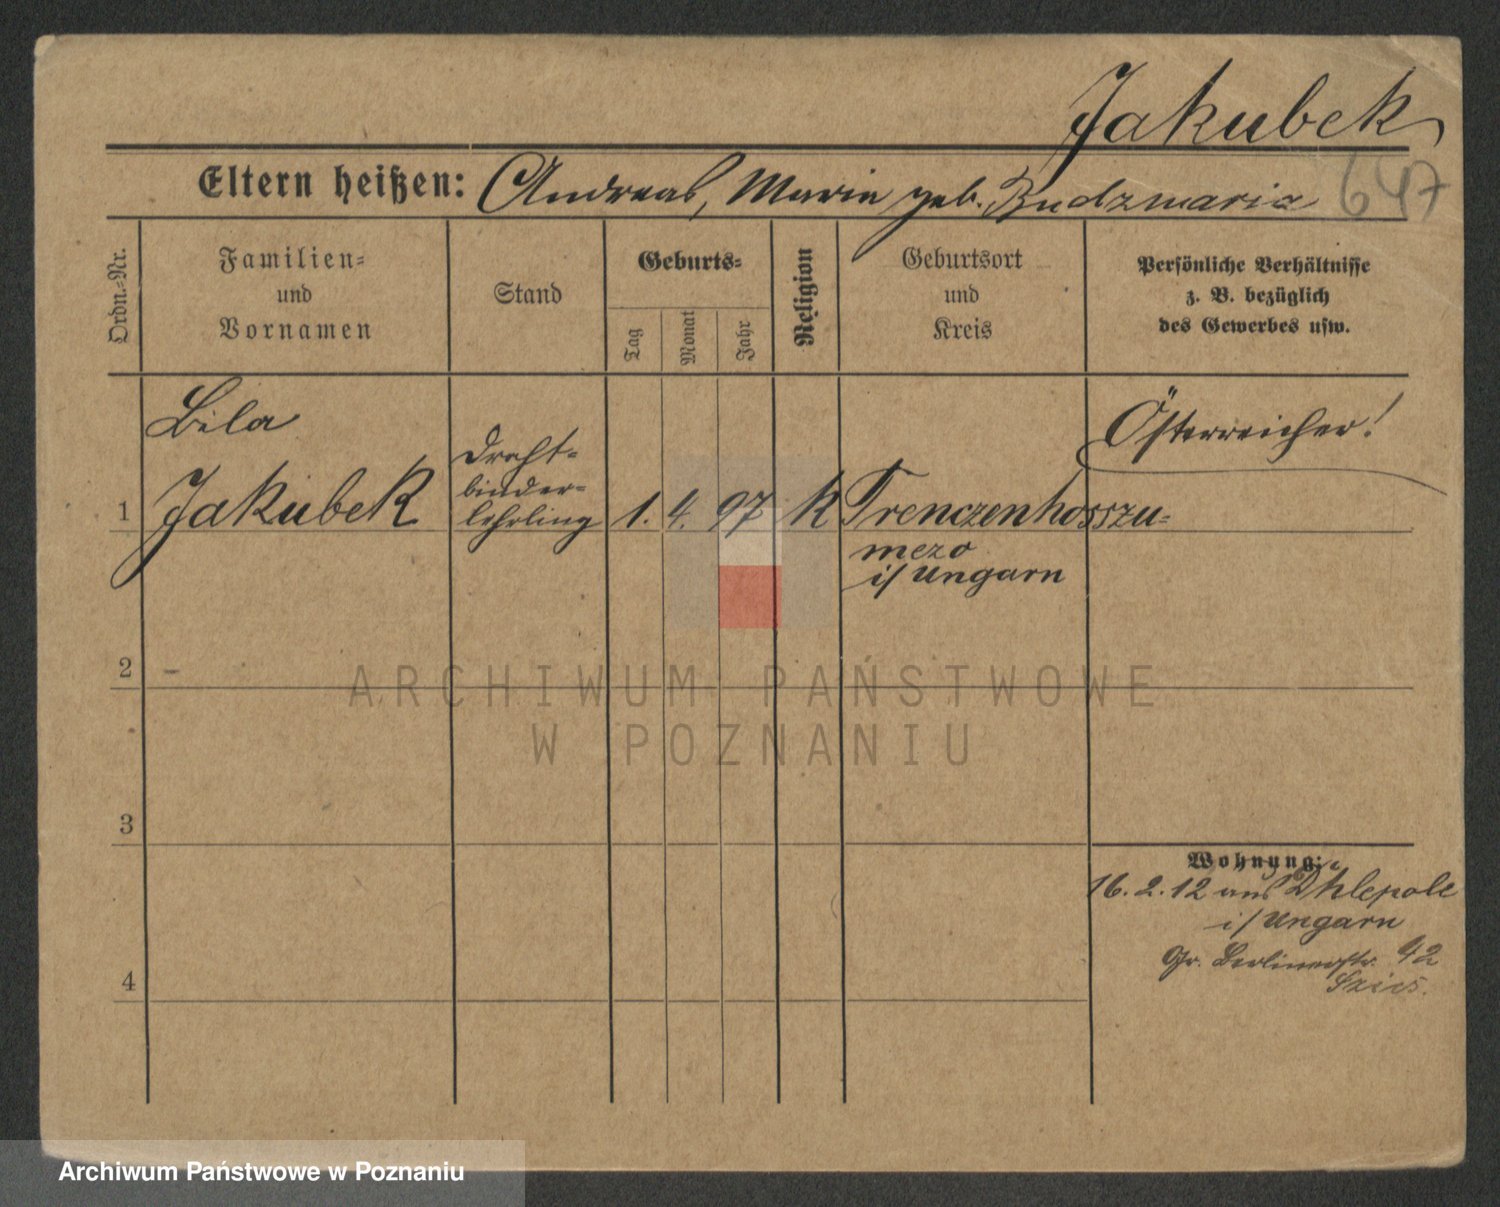 Jakubek
647
Eltern heißen: Andreas, Marie geb. Budzmaria
Ordn.-Nr.
Familien-
und
Vornamen
Stand
Geburts-
Tag
Monat
Jahr
Religion
Geburtsort
und
Kreis
Persönliche Verhältnisse
z. B. bezüglich
des Gewerbes usw.
Bila
Österreicher!
Draht-
binder-
1 Jakubek lehrling 1. 4. 97 k Trenczenhosszu-
mezo
i/Ungarn
2
ARCHIWUM PAŃSTWOWE
W POZNANIU
3
Wohnung:
16.2.12 aus Dhlepole
i/Ungarn
Gr. Berlinerstr. 42
4
Archiwum Państwowe w Poznaniu